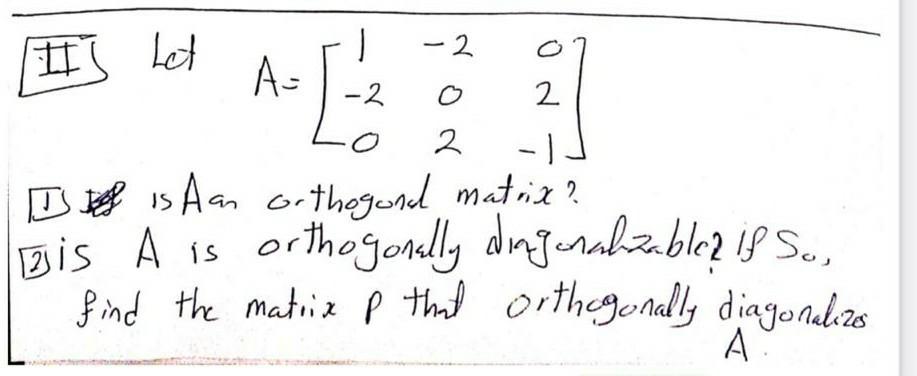 II Let A = [ 1 -2 0
-2 0 2
0 2 -1 ]
1 is A an orthogonal matrix?
2 is A is orthogonally diagonalizable? If So,
find the matrix P that orthogonally diagonalizes
A.